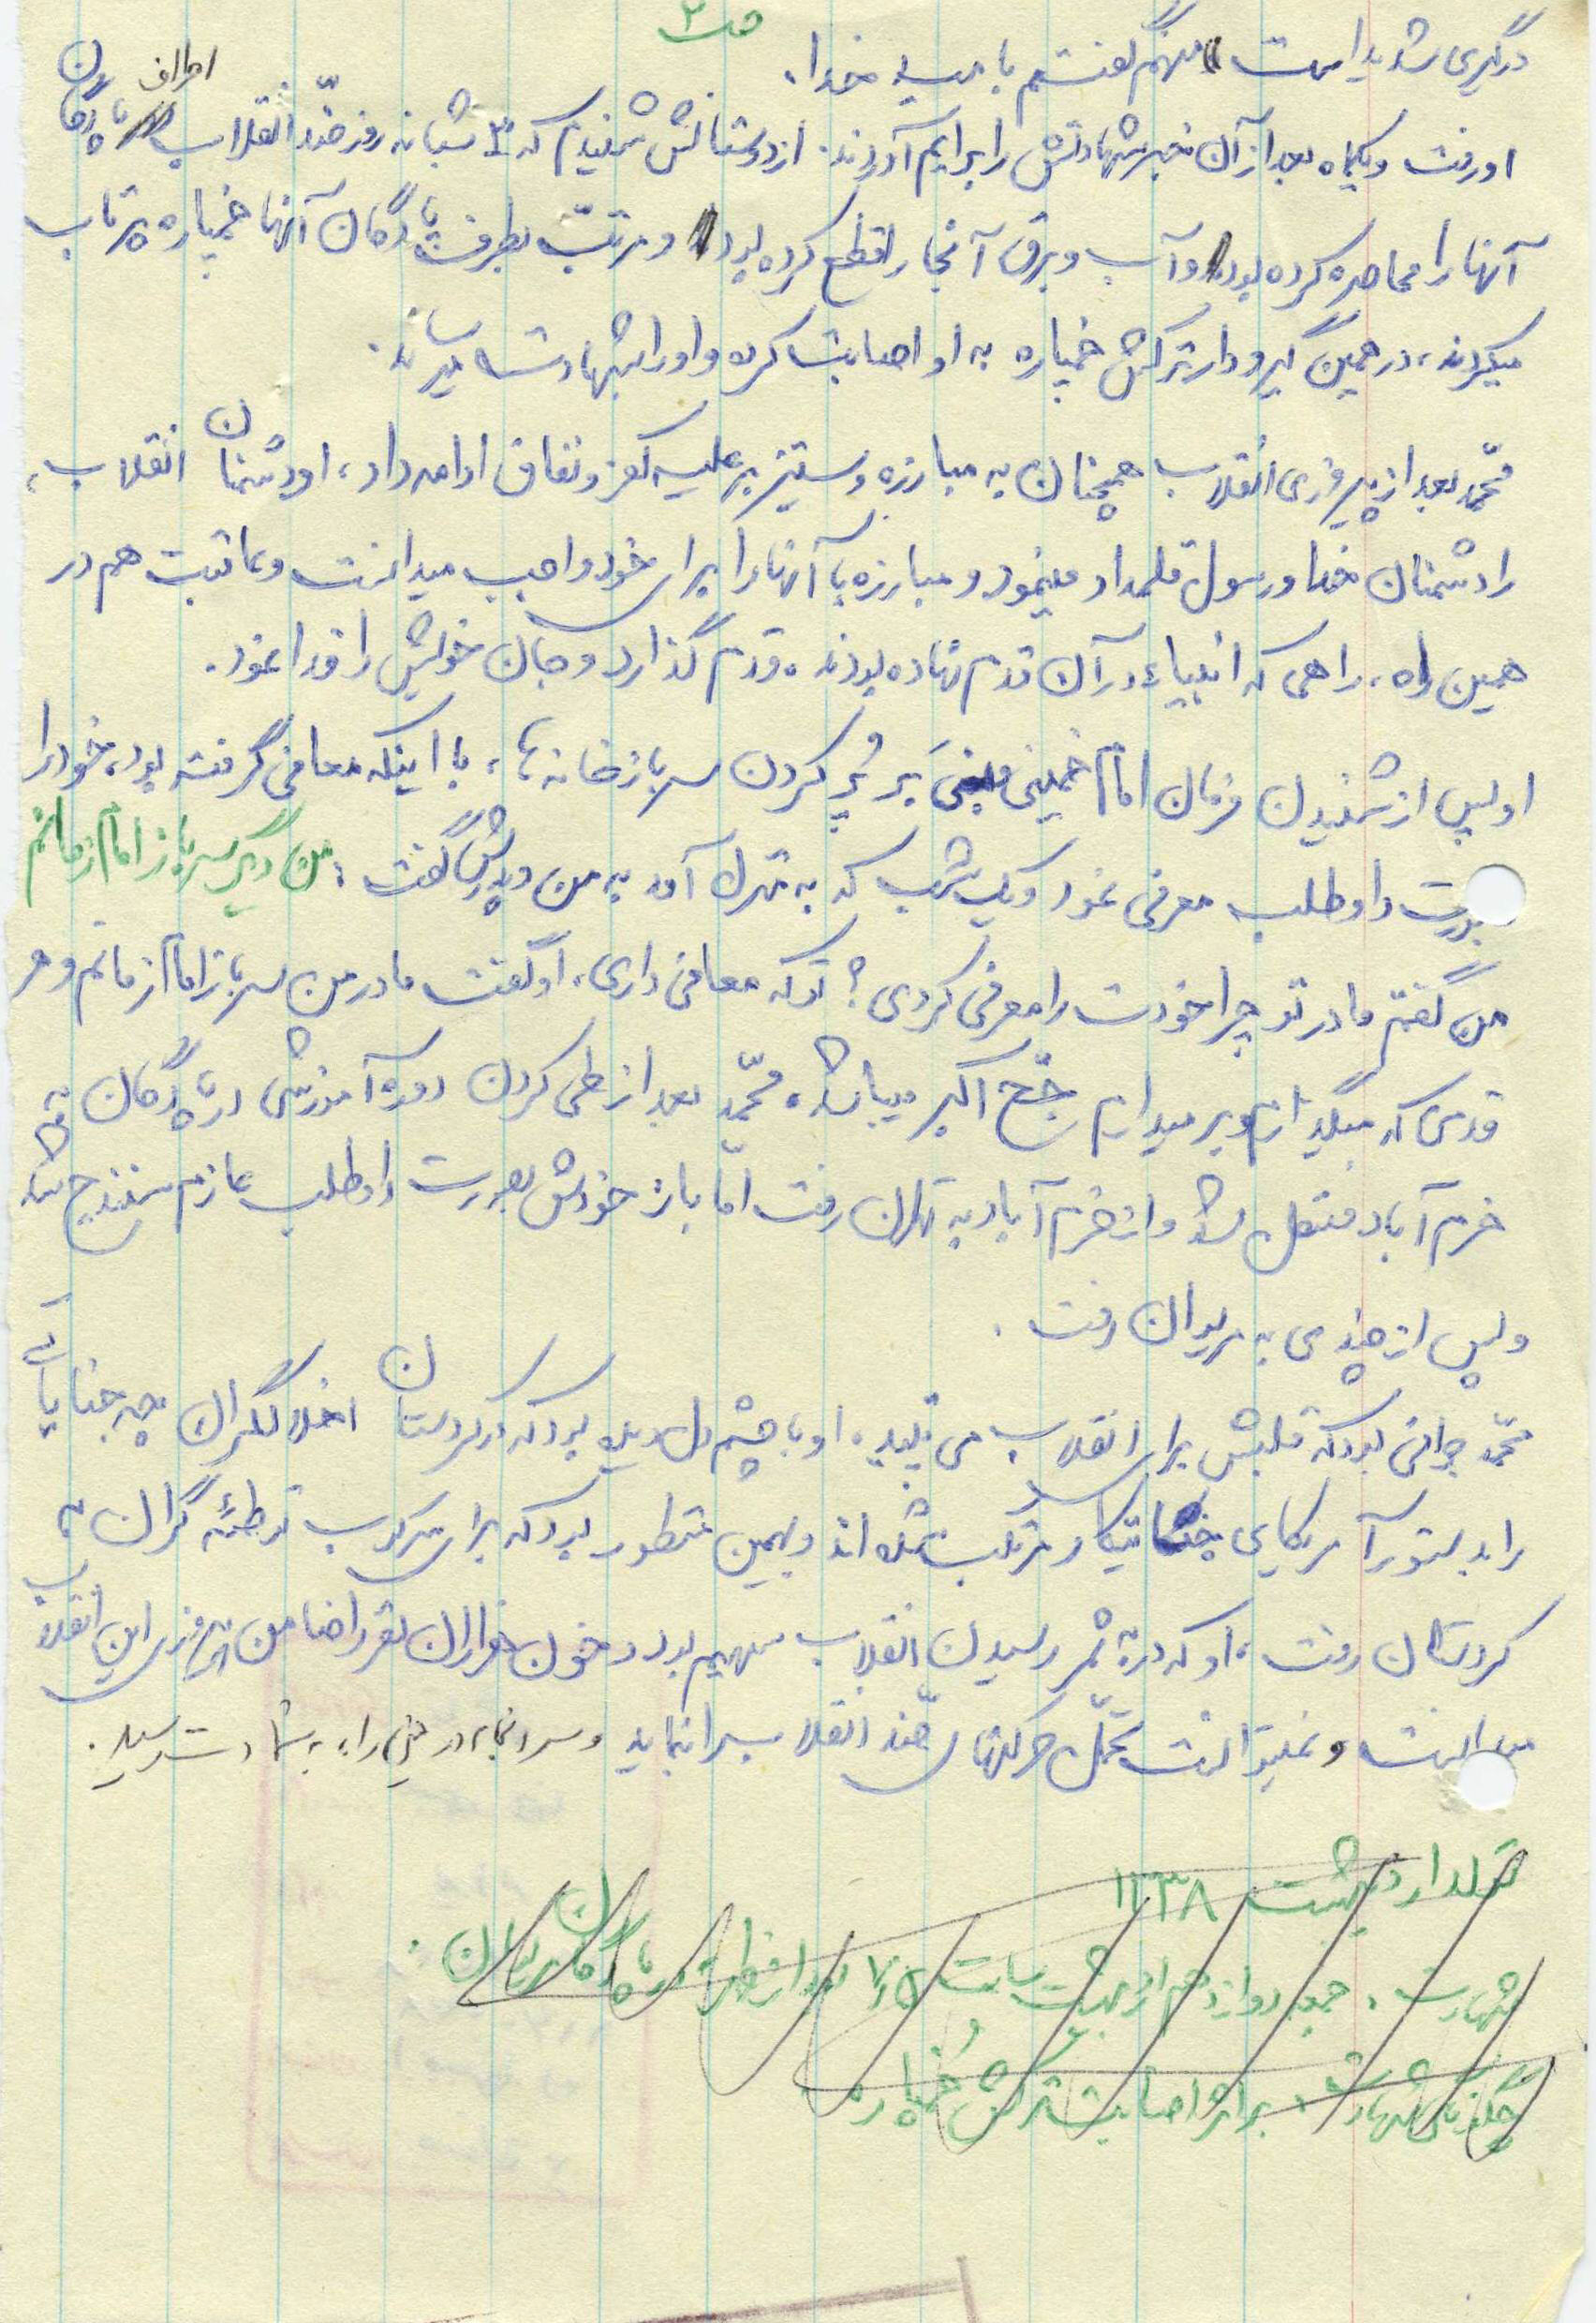 ص ۲
درگیری شدید است منهم گفتم بامید خدا.
او رفت و یکماه بعد از آن خبر شهادتش را برایم آوردند. از دوستانش شنیدم که ۳ شبانه روز ضدّ انقلاب اطراف پادگان
آنها را محاصره کرده بود و آب و برق آنجا را قطع کرده بود و مرتّب بطرف پادگان آنها خمپاره پرتاب
میکردند، در همین گیر و دار ترکش خمپاره به او اصابت کرده و او را بشهادت میرساند.
محمّد بعد از پیروزی انقلاب همچنان به مبارزه و ستیز بر علیه کفر و نفاق ادامه داد، او دشمنان انقلاب،
را دشمنان خدا و رسول قلمداد مینمود و مبارزه با آنها را برای خود واجب میدانست و عاقبت هم در
همین راه، راهی که انبیاء در آن قدم نهاده بودند، قدم گذارد و جان خویش را فدا نمود.
او پس از شنیدن فرمان امام خمینی مبنی بر پُر کردن سربازخانه ها، با اینکه معافی گرفته بود، خود را
بصورت داوطلب معرفی نمود و یک شب که به منزل آمد به من و پدرش گفت: من دیگر سرباز امام زمانم
من گفتم مادر تو چرا خودت را معرفی کردی؟ تو که معافی داری، او گفت مادر من سرباز امام زمانم و هر
قدمی که میگذارم و بر میدارم حجّ اکبر میباشد، محمّد بعد از طی کردن دوره آموزشی در پادگان به
خرم آباد منتقل شد و از خرم آباد به تهران رفت امّا باز خودش بصورت داوطلب عازم سنندج شد
و پس از چندی به مریوان رفت.
محمّد جوانی بود که قلبش برای انقلاب می تپید، او با چشم دل دیده بود که در کردستان اخلالگران چه جنایاتی
را بدستور آمریکای جنایتکار مرتکب شده اند و بهمین منظور بود که برای سرکوب توطئه گران به
کردستان رفت، او که در به ثمر رسیدن انقلاب سهیم بود و خون هزاران نفر را ضامن پیروزی این انقلاب
میدانست و نمیتوانست تحمّل حرکتهای ضدّ انقلاب را بنماید و سرانجام در همین راه به شهادت رسید.
تولد اردیبهشت ۱۳۳۸
شهادت، جمعه دوازدهم اردیبهشت ساعت ۷/۵ بعد از ظهر در پادگان مریوان.
چگونگی شهادت، بر اثر اصابت ترکش خمپاره